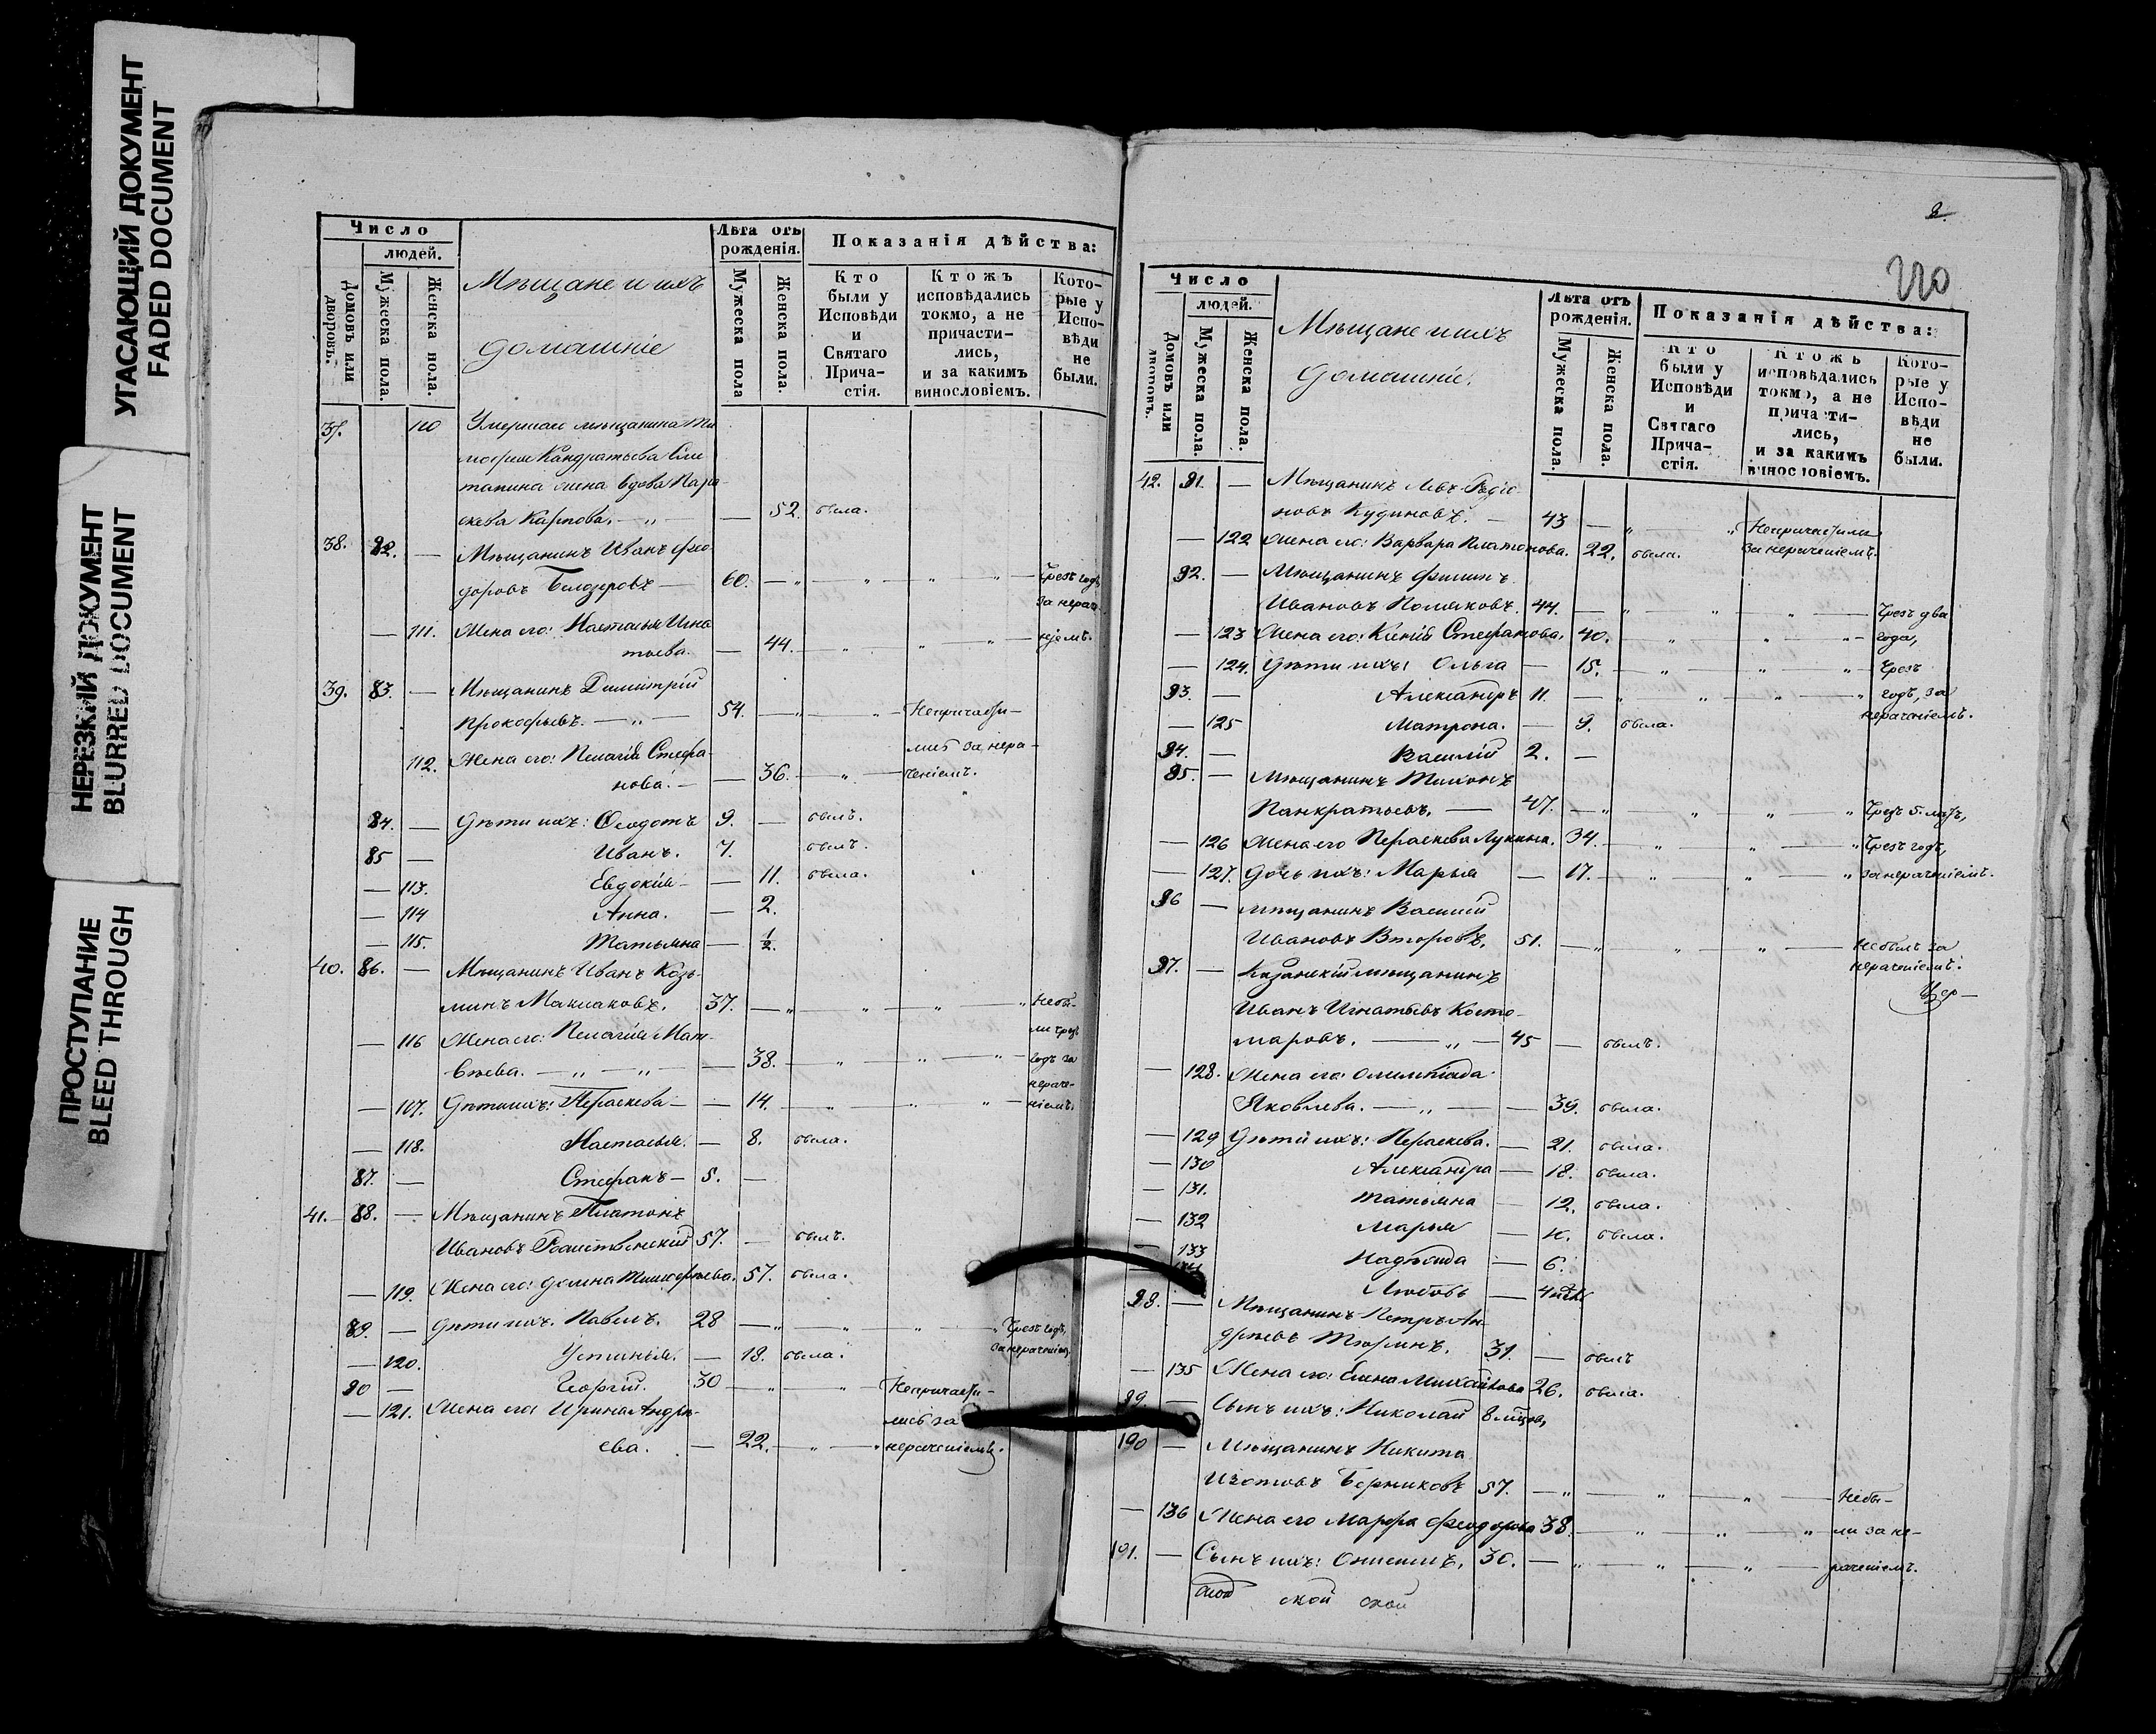 УГАСАЮЩИЙ ДОКУМЕНТ
FADED DOCUMENT
НЕРЕЗКИЙ ДОКУМЕНТ
BLURRED DOCUMENT
ПРОСТУПАНИЕ
BLEED THROUGH
Число
людей.
Домовъ или дворовъ.
Мужеска пола.
Женска пола.
Мѣщане и ихъ
домашніе
Лѣта отъ рожденія.
Мужеска пола
Женска пола.
Показанія дѣйства:
Кто были у Исповѣди и Святаго Прича-стія.
Ктожъ исповѣдались токмо, а не причасти-лись, и за какимъ винословіемъ.
Кото-рые у Испо-вѣди не были.
37. 110 мѣщанина
Кандратьева
жена вдова Пара-
скева Карпова. — 52. была.
38. 82. — Мѣщанинъ Иванъ Ѳео-
доровъ Белозеровъ — 60. — Чрезъ годъ
за нерач-
— 111. Жена его: Настасья Игна
тьева. — 44. ніемъ.
39. 83. — Мѣщанинъ Димитрій
Прокофьевъ. — 54. — Непричасти-
лись за нера-
112. Жена его: Пелагія Стефа-
нова. — 36. — ченіемъ.
84. — Дѣти ихъ: Ѳеодотъ 9. — былъ.
85 — Иванъ. 7. былъ.
— 113. Евдокія — 11. была.
— 114 Анна. — 2.
— 115. Татьяна — 1/2.
40. 86. — Мѣщанинъ Иванъ Козь-
минъ Маклаковъ. 37. — Небы-
ли чрезъ
— 116 Жена его: Пелагія Мат-
вѣева. — 38. — годъ за
нераче-
— 117. Дѣти ихъ: Параскева — 14. — ніемъ.
— 118. Настасья. — 8. была.
87. — Стефанъ — 5. —
41. 88. — Мѣщанинъ Платонъ
Ивановъ 57. — былъ.
— 119. Жена его: Тимофѣева. 57. была.
89. — Дѣти ихъ. Павелъ. 28 — Чрезъ годъ,
за нераченіемъ
— 120. Устинья. — 18. была.
90 — Георгій. 30 — Непричасти-
лись за
— 121. Жена его Ирина Андрѣ-
ева. — 22. — нераченіемъ.
220
Число
людей.
Домовъ или дворовъ.
Мужеска пола.
Женска пола.
Мѣщане и ихъ
домашніе.
Лѣта отъ рожденія.
Мужеска пола.
Женска пола.
Показанія дѣйства:
Кто были у Исповѣди и Святаго Прича-стія.
Ктожъ исповѣдались токмо, а не причасти-лись, и за какимъ винословіемъ.
Кото-рые у Испо-вѣди не были.
42. 91. — Мѣщанинъ Левъ Родіо-
новъ Кудиновъ. — 43 — Непричастили
— 122 Жена его: Варвара Платонова. 22. была. за нераченіемъ.
92. — Мѣщанинъ Филипъ
Ивановъ Поляковъ. 44. — Чрезъ два
— 123 Жена его: Ксенія Стефанова. 40. — года,
— 124. Дѣти ихъ: Ольга — 15. — Чрезъ
93. — Александръ 11. — годъ, за
— 125 Матрона. — 9. была. нераченіемъ.
94. — Василій 2. —
95. — Мѣщанинъ
Панкратьевъ. — 47. — Чрезъ 5. лѣтъ,
— 126 Жена его Пераскева Лукина. 34. — Чрезъ годъ,
— 127. Дочь ихъ: Марья — 17. — за нераченіемъ.
96 — Мѣщанинъ Василій
Ивановъ Второвъ. 51. — Небылъ за
нераченіемъ.
97. — Казанскій мѣщанинъ
Иванъ Игнатьевъ Косто-
маровъ. — 45 — былъ.
— 128. Жена его Олимпіада
Яковлева. — 39. была.
— 129 Дѣти ихъ: Пераскева. — 21. была.
— 130 Александра — 18. была.
— 131. Татьяна — 12. была.
— 132 Марья — была.
— 133 Надѣжда — 6.
Любовь —
98. — Мѣщанинъ Петръ Ан-
дрѣевъ Тюринъ. 31. — былъ
— 135 Жена его: Елена Михайлова 26. была.
99. — Сынъ ихъ: Николай 8 мѣцов,
190 — Мѣщанинъ Никита
Изотовъ Берниковъ 57. — Небы-
— 136 Жена его Марѳа Ѳеодорова 38. — ли за не-
191. — Сынъ ихъ: Онисимъ. 30. — раченіемъ.
ской